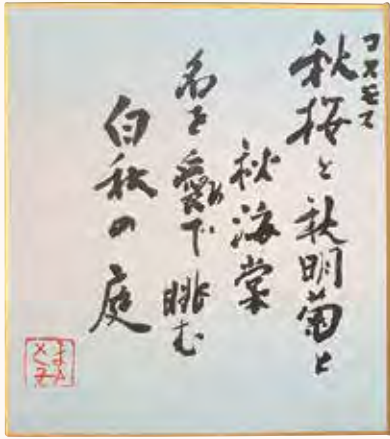 コスモス
秋桜と秋明菊と
秋海棠
名を愛め で眺む
白秋の庭